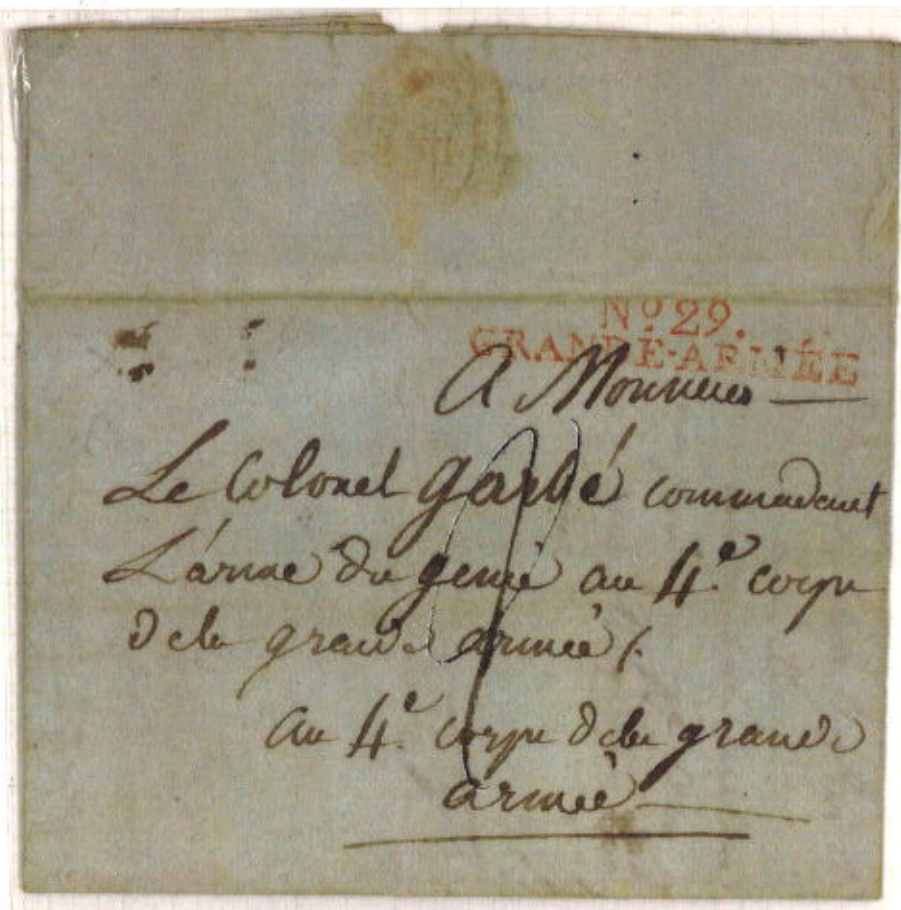 No 29.
GRANDE-ARMÉE
A Monsieur
Le Colonel Garbé commandant
L'arme du genie au 4.e corps
de la grande armée /.
au 4.e corps de la grande
armée